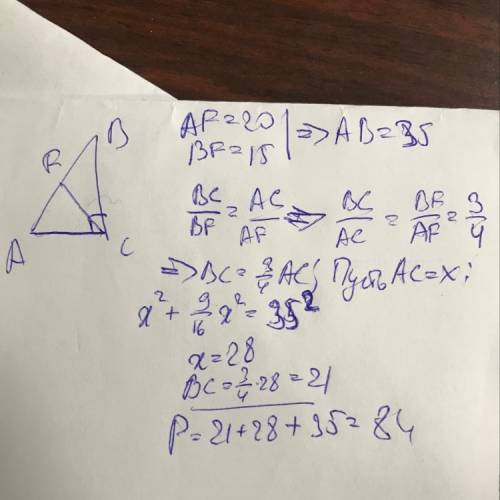 B
F
A
C
AF=20
BF=15 | => AB=35
BC/BF = AC/AF => BC/AC = BF/AF = 3/4
=> BC = 3/4 AC; Пусть AC=x;
x² + 9/16 x² = 35²
x=28
BC = 3/4 · 28 = 21
P = 21+28+35 = 84